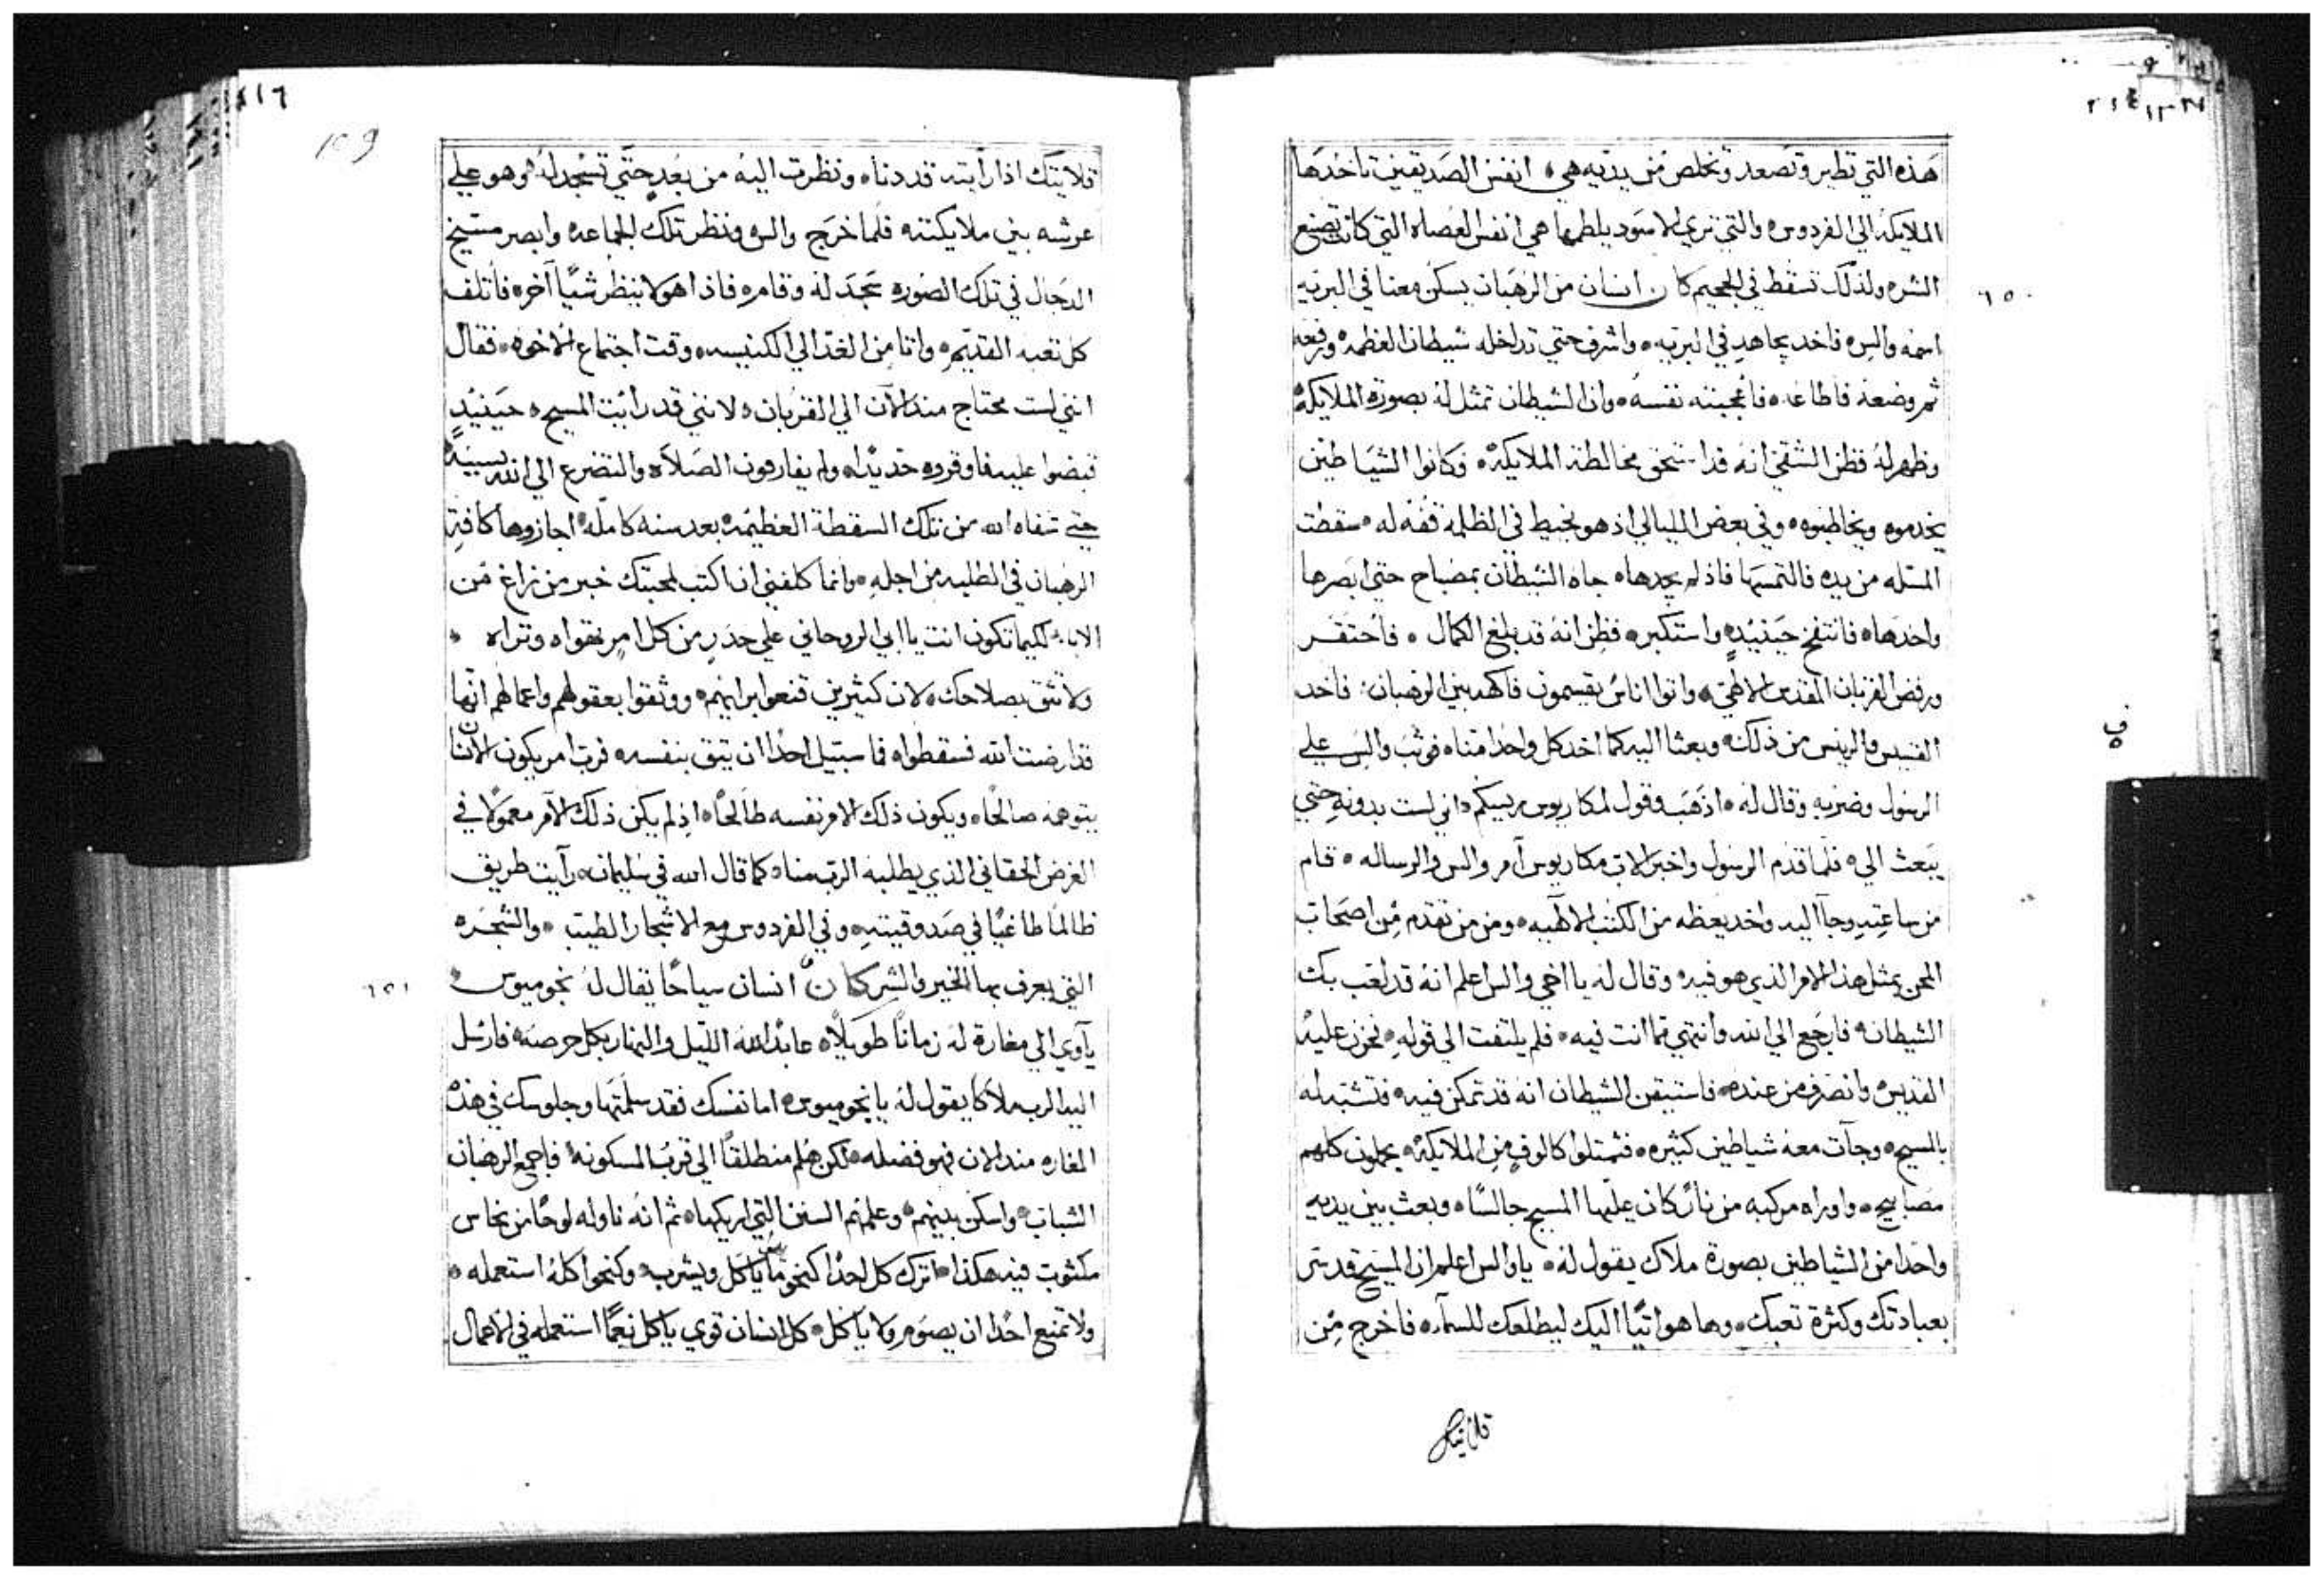 هذه التي تطير وتصعد وتخلص من يديه هي انفس الصديقين تاخدها
الملايكه الي الفردوس والتي تري الاسود يلطمها هي انفس العصاه التي كانت تصنع
الشر ولذلك تسقط في الجحيم كان انسان من الرهبان يسكن معنا في البريه
٦٥٠
اسمه والس فاخد يجاهد في البريه واشرف حتي تداخله شيطان العظمه ورفعه
ثم وضعه فاطاعه فاعجبته نفسه وان الشيطان تمثل له بصورة الملايكه
وظهر له فظن الشقي انه قد استحق مخالطة الملايكه وكانوا الشياطين
يخدموه ويخاطبوه وفي بعض الليالي اذ هو يخيط في الظلمه قفه له سقطت
المسله من يده فالتمسها فاذ لم يجدها جاه الشيطان بمصباح حتي ابصرها
واخدها فانتفخ حينيد واستكبر فظن انه قد بلغ الكمال فاحتقر
ورفض القربان المقدس الالهي واتوا اناس يقسمون فاكهه بين الرهبان فاخد
القديس والريس من ذلك وبعثا اليه كما اخد كل واحدا مناه فوثب والس علي
الرسول وضربه وقال له اذهب وقول لمكاريوس ريسكم اني لست بدونه حتي
يبعث الي فلما قدم الرسول واخبر الاب مكاريوس امر والس والرساله قام
من ساعته وجا اليه واخد يعظه من الكتب الالهيه ومن من تقدم من اصحاب
المحن بمثل هذا الامر الذي هو فيه وقال له يا اخي والس اعلم انه قد لعب بك
الشيطان فارجع الي الله وانتهي مما انت فيه فلم يلتفت الي قوله فحزن عليه
القديس وانصرف من عنده فاستيقن الشيطان انه قد تمكن فيه فتشبه له
بالمسيح وجات معه شياطين كثيره فتمثلوا كالوف من الملايكه يحملون كلهم
مصابيح واوراه مركبه من نار كان عليها المسيح جالسا وبعث بين يديه
واحدا من الشياطين بصورة ملاك يقول له يا والس اعلم ان المسيح قد سر
بعبادتك وكثرة تعبك وها هو اتيا اليك ليطلعك للسما فاخرج من
قلايتك
٢١٦
159
قلايتك اذا رايته قد دنا ونظرت اليه من بعد حتي تسجد له وهو علي
عرشه بين ملايكته فلما خرج والس ونظر تلك الجماعه وابصر مسيخ
الدجال في تلك الصوره سجد له وقام فاذا هو لا ينظر شيا آخر فاتلف
كل تعبه القديم واتا من الغد الي الكنيسه وقت اجتماع الاخوه فقال
انني لست محتاج مند الآن الي القربان لانني قد رايت المسيح حينيد
قبضوا عليه واوقروه حديدا ولم يفارقون الصلاه والتضرع الي الله بسببه
حتي شفاه الله من تلك السقطة العظيمه بعد سنه كامله اجازوها كافة
الرهبان في الطلبه من اجله وانما كلفني ان اكتب لمحبتك خبر من زاغ من
الابا لكيما تكون انت يا ابي الروحاني علي حدر من كل امر تهواه وتراه
ولا تثق بصلاحك لان كثيرين قنعوا برايهم ووثقوا بعقولهم واعمالهم انها
قد ارضت الله فسقطوا فما سبيل احدا ان يثق بنفسه فرب امر يكون الانسان
يتوهمه صالحا ويكون ذلك الامر نفسه طالحا اذ لم يكن ذلك الامر معمولا في
الغرض الحقاني الذي يطلبه الرب منا كما قال الله في سليمان رايت طريف
ظالما طاغيا في صدوقيته وفي الفردوس مع الاشجار الطيب والشجره
التي يعرف بها الخير والشر كان انسان سياحا يقال له بخوميوس
٦٥١
يآوي الي مغارة له زمانا طويلا عابدا لله الليل والنهار بكل حرصه فارسل
اليه الرب ملاكا يقول له يا بخوميوس اما نفسك فقد سلمتها وجلوسك في هذه
المغاره مند الان فهو فضله لكن هلم منطلقا الي قرب المسكونه فاجمع الرهبان
الشباب واسكن بينهم وعلمهم السنن التي اريكها ثم انه ناوله لوحا من نحاس
مكتوب فيه هكذا اترك كل احدا كنحو ما ياكل ويشرب وكنحو اكله استعمله
ولا تمنع احدا ان يصوم ولا ياكل كل انسان قوي ياكل نعما استعمله في الاعمال